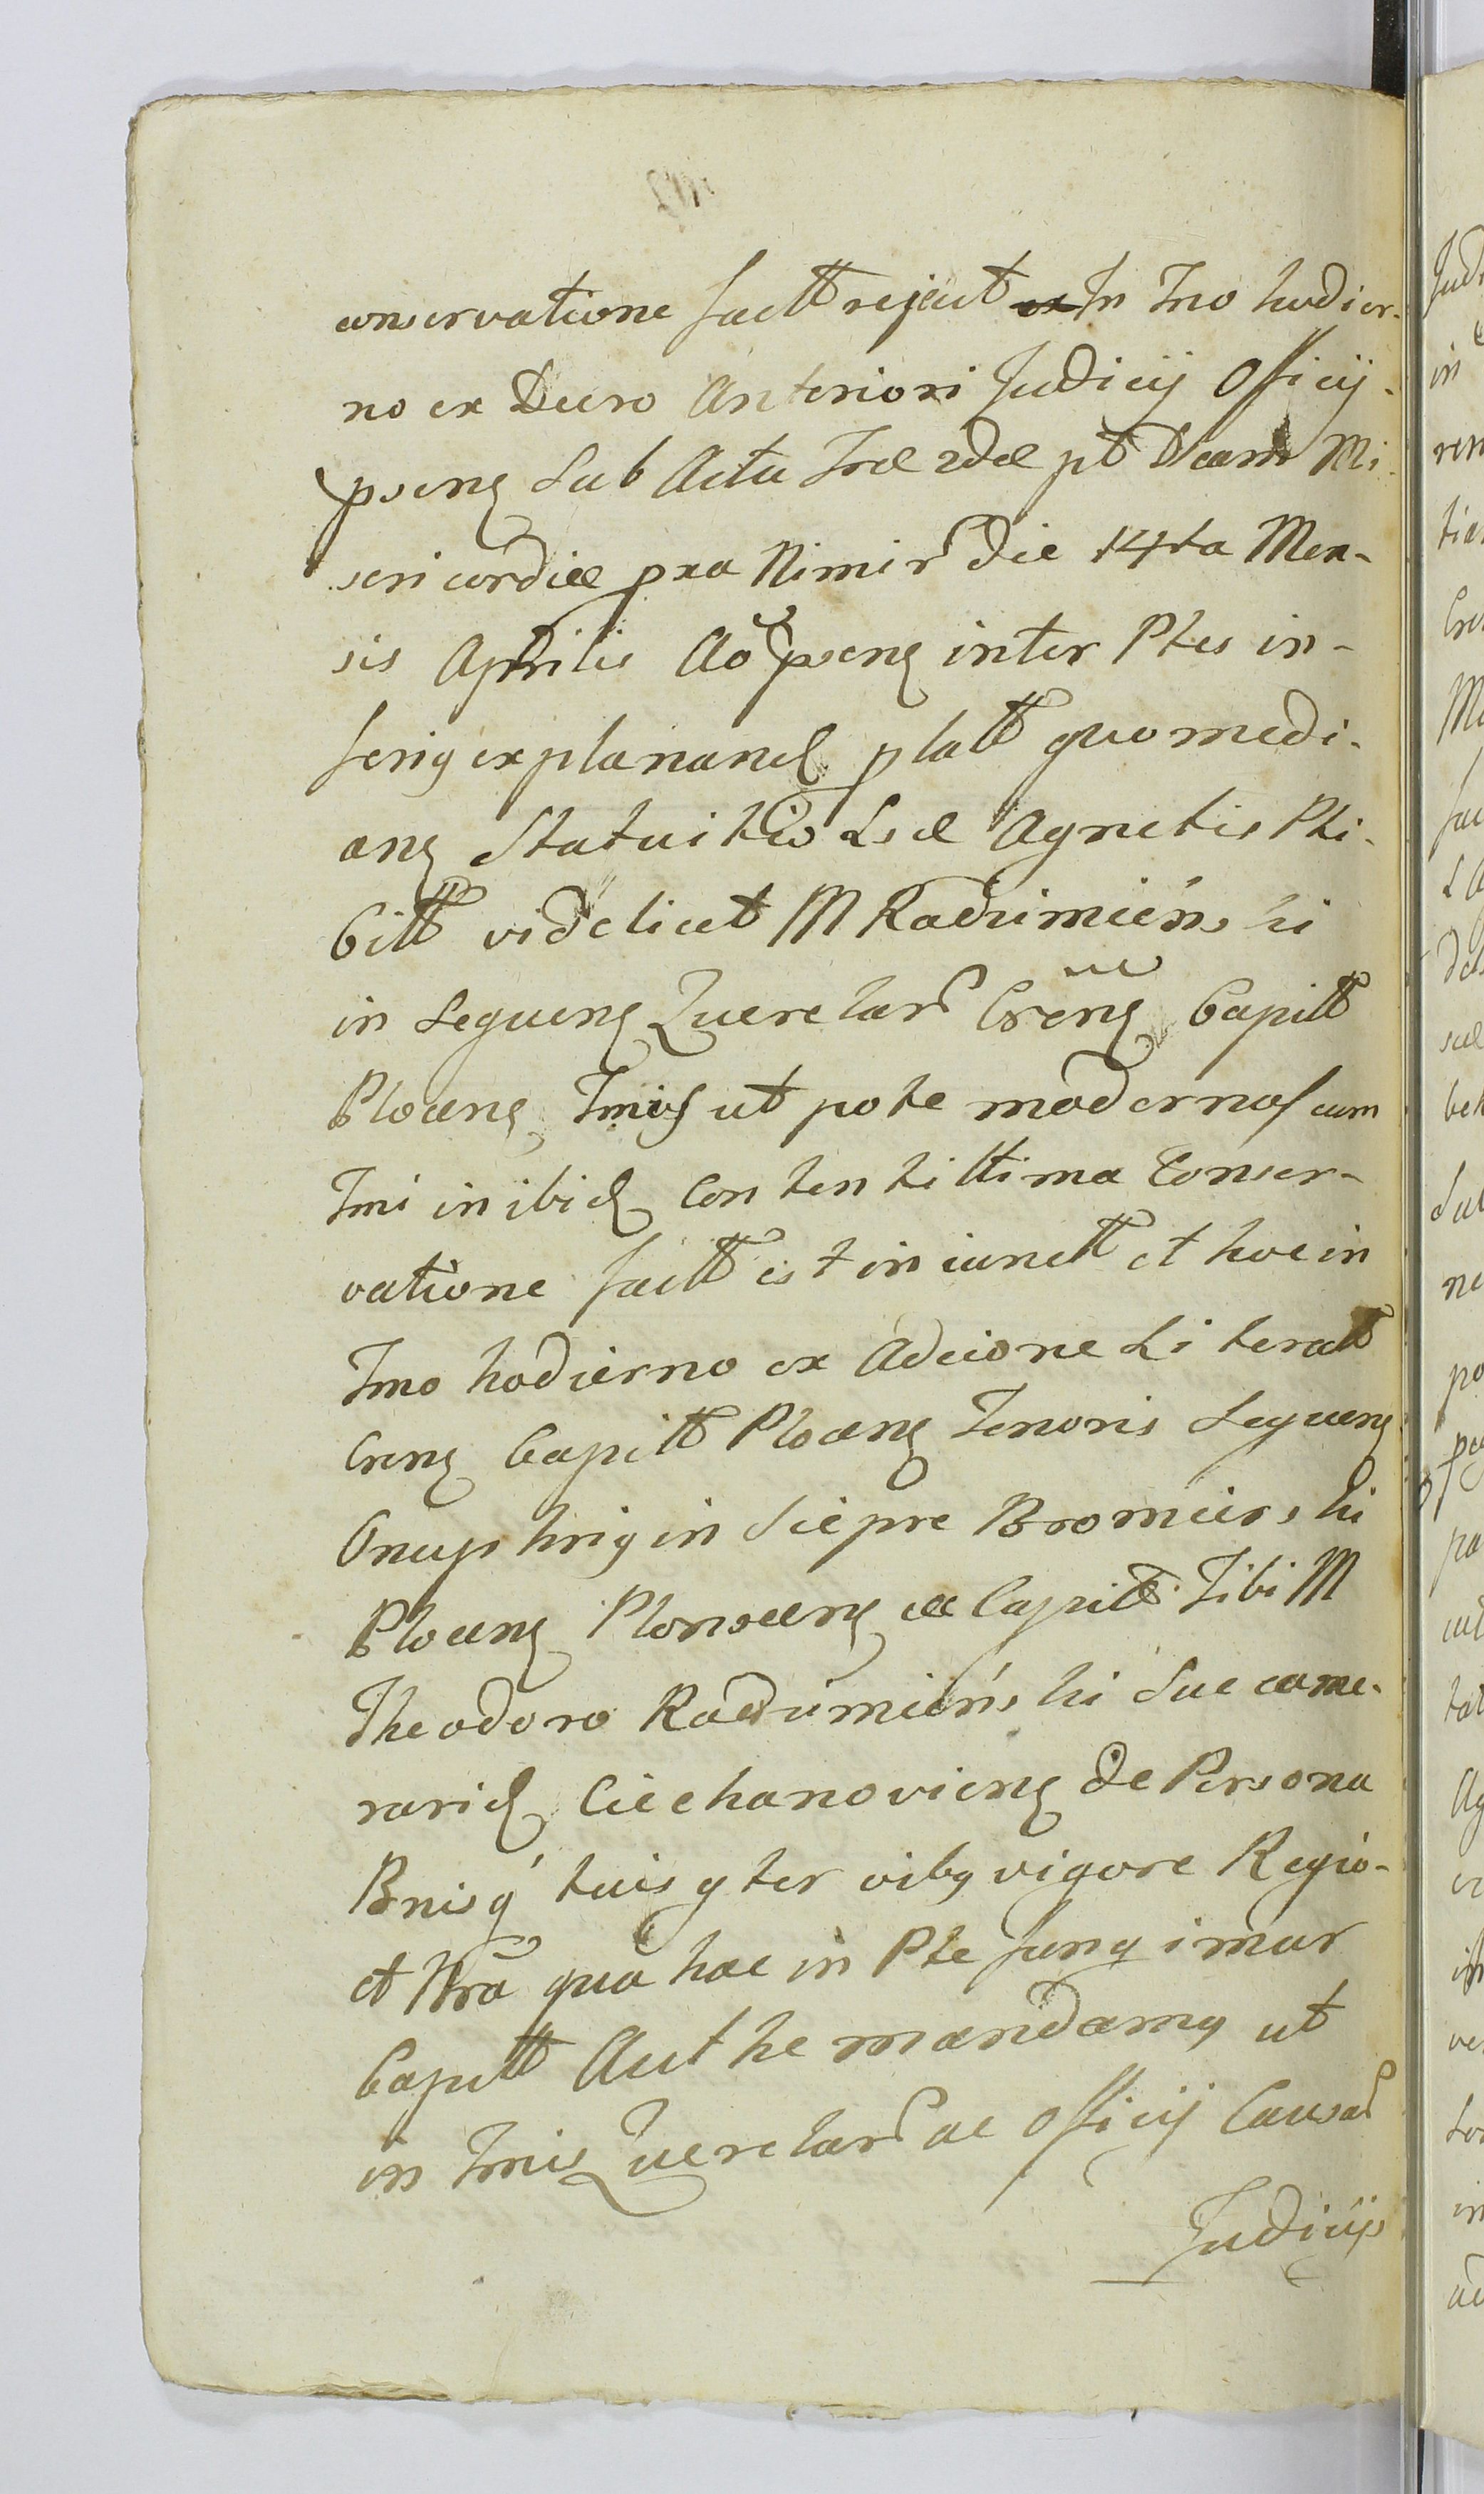 conservatione factt reject In Tno hodier-
no ex Decro Anteriori Judicij Officij
psenq Sub Actu Fræ 2dæ pt Dcam Mi-
sericordiæ pxa Nimir die 14ta Men-
sis Aprilis Ao psenq inter Ptes in-
feriq explanand platt quo medi-
anq Statuit Lsæ Agnetis Phi-
bitt videlicet M Radzimiens ki
in Sequenq Querelar Crenq Capitt
Plocenq Tmis ut pote modernos cum
Tmi in ibid Conten tissima Conser-
vatione factt est in iunctt et hoc in
Tmo hodierno ex Adcione Li teratt
Crenq Capitt Plocenq Tenoris Sequenq
Onuphriq in Siepre Bromiers ki
Plocenq Plonscenq æ Capitt Tibi M
Theodoro Radzimiens ki Succame-
rarid Ciechanovienq de Persona
Bnisq tuis gter vibq vigore Regio-
et Nrã qua hac in Pte fungimur
Capitt Aut he mandamq ut
in Tmis Querelar ac Officij Causar
Judicijs